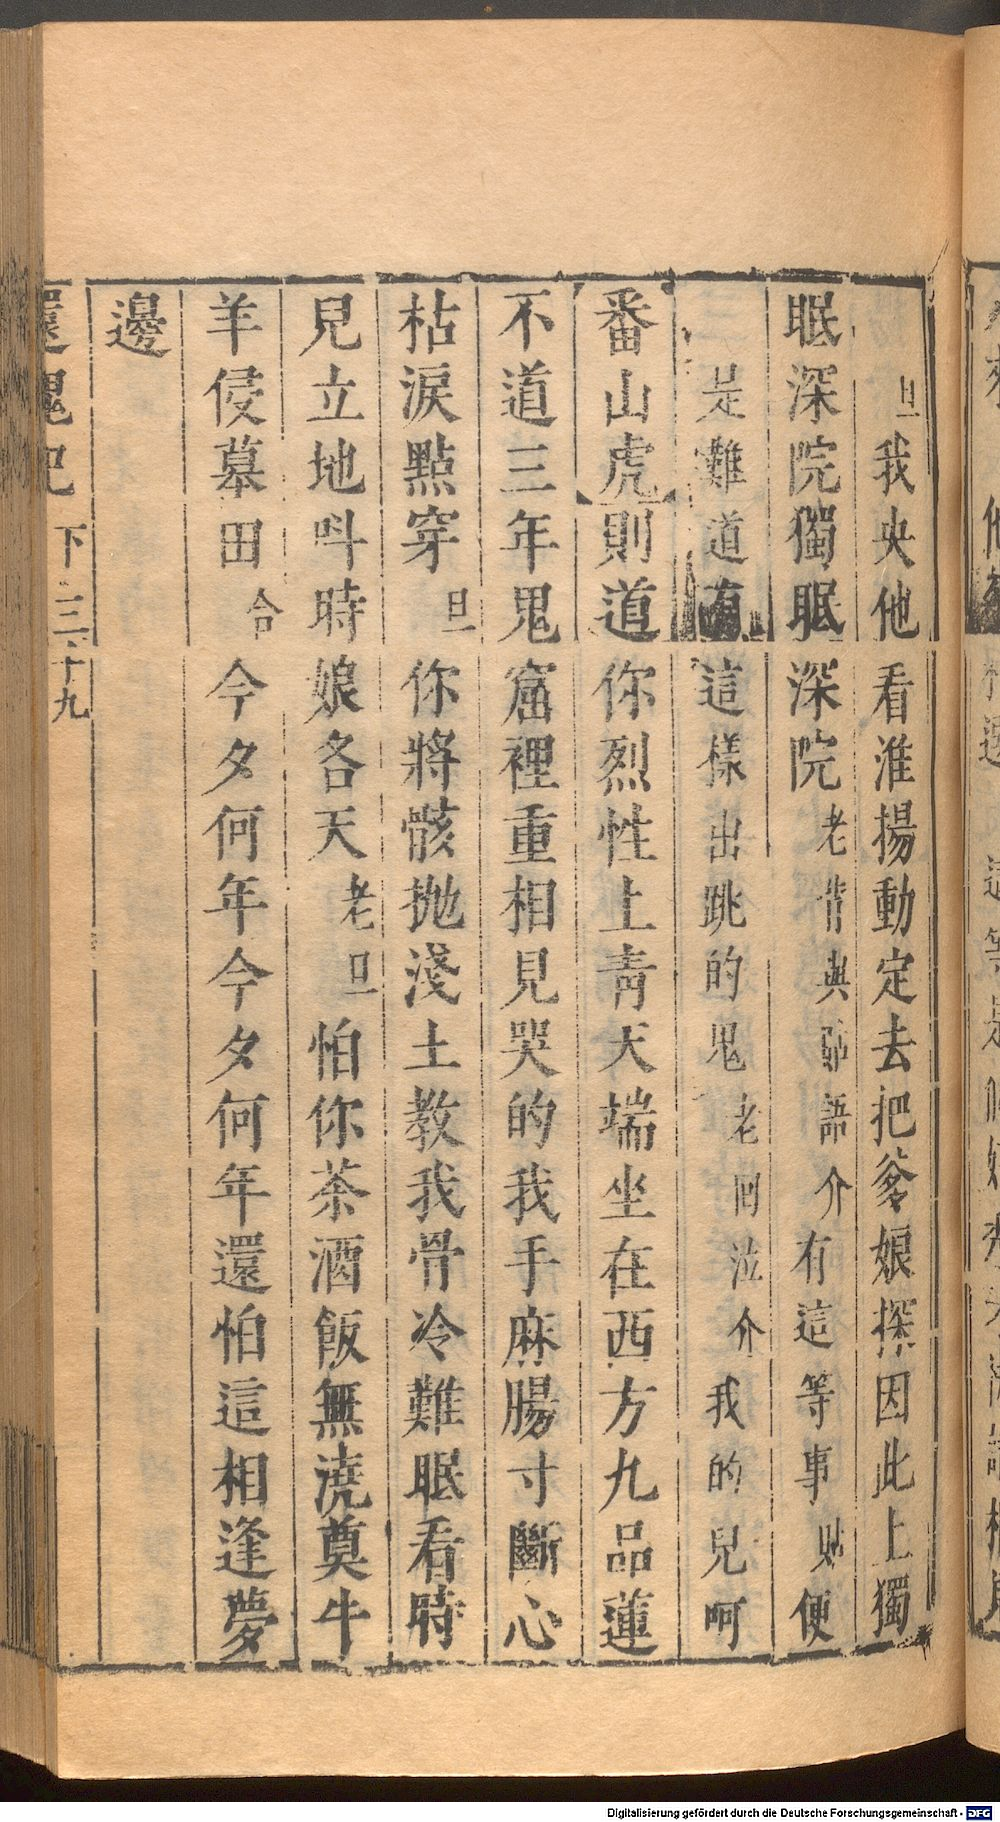 旦我央他看淮揚動定去把爹娘探因此上獨
眠深院獨眠深院老背與郎語介有這等事貼便
是難道有這樣出跳的鬼老回泣介我的兒呵
番山虎則道你烈性上青天端坐在西方九品蓮
不道三年鬼窟裡重相見哭的我手麻腸寸斷心
枯淚點穿旦你將骸拋淺土教我骨冷難眠看時
見立地呌時娘各天老旦怕你茶酒飯無澆奠牛
羊侵墓田合今夕何年今夕何年還怕這相逢夢
邊
還魂記 下 三十九
Digitalisierung gefördert durch die Deutsche Forschungsgemeinschaft - DFG